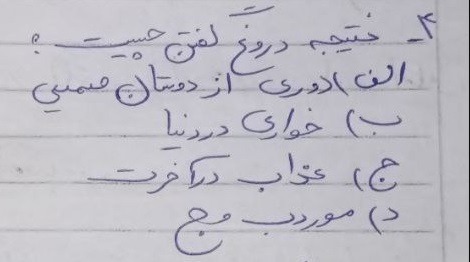 ۴_ نتیجه دروغ گفتن چیست ؟
الف) دوری از دوستان صمیمی
ب) خواری در دنیا
ج) عذاب در آخرت
د) مورد ب و ج